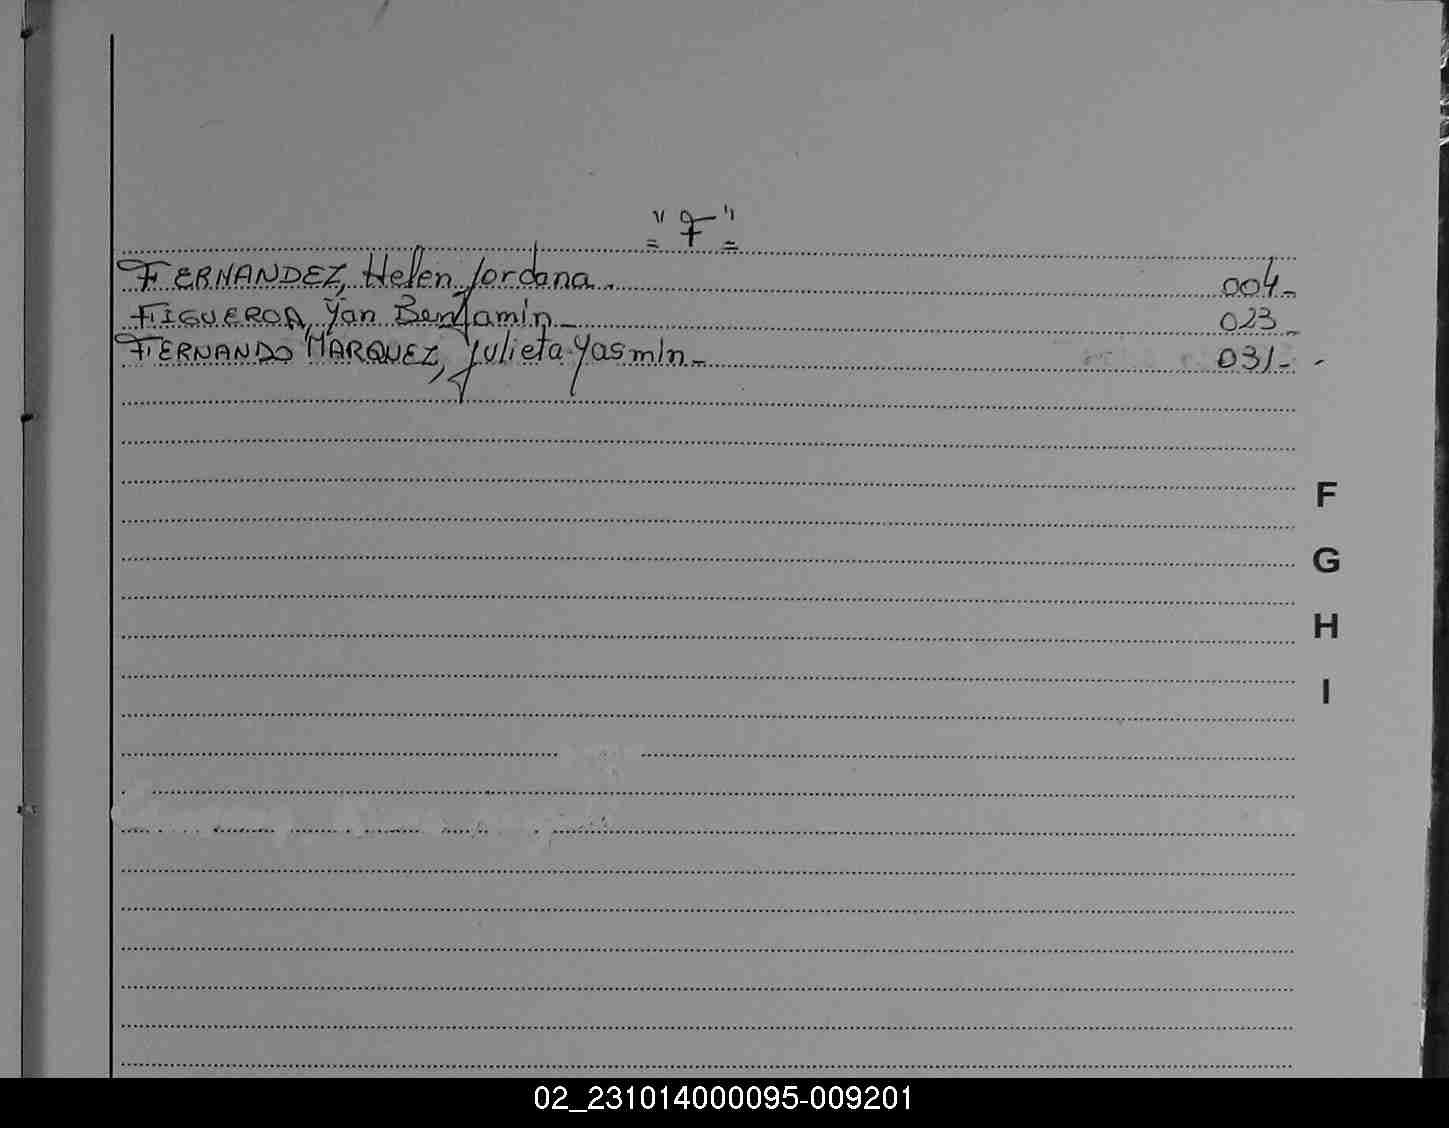 "F"
FERNANDEZ, Helen Jordana.
004-
FIGUEROA, Yan Benjamín_
023_
FERNANDO MARQUEZ, Julieta Yasmin_
031-
F
G
H
I
02_231014000095-009201